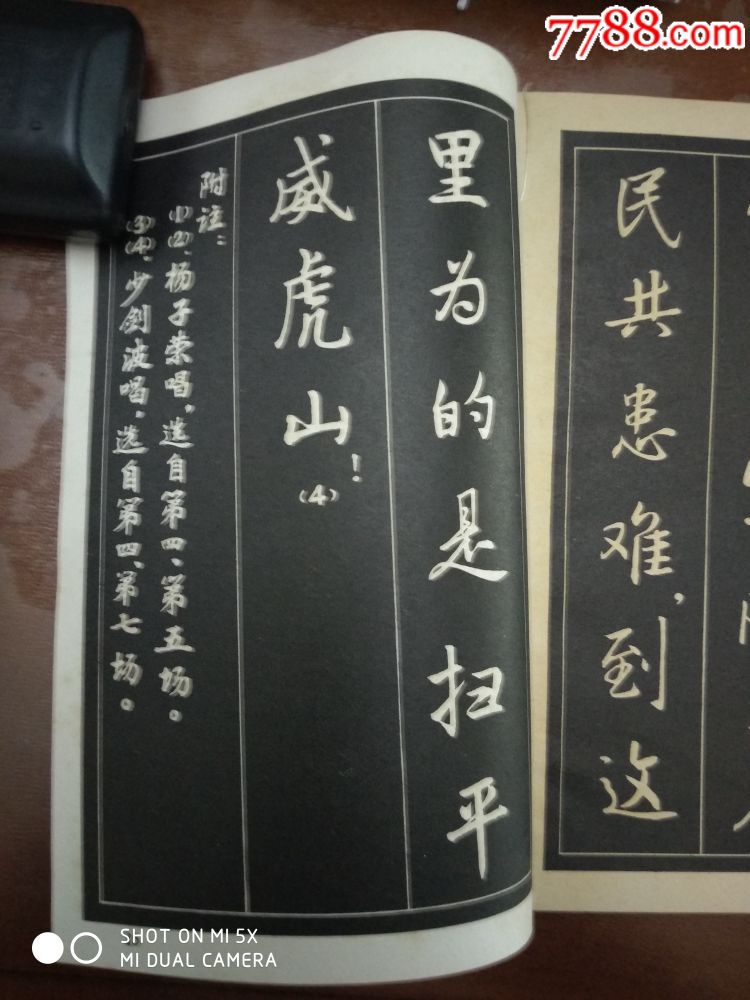 7788.com
民共患难，到这
里为的是扫平
威虎山！(4)
附注：
(1)(2)、杨子荣唱，选自第四、第五场。
(3)(4)、少剑波唱，选自第四、第七场。
SHOT ON MI 5X
MI DUAL CAMERA